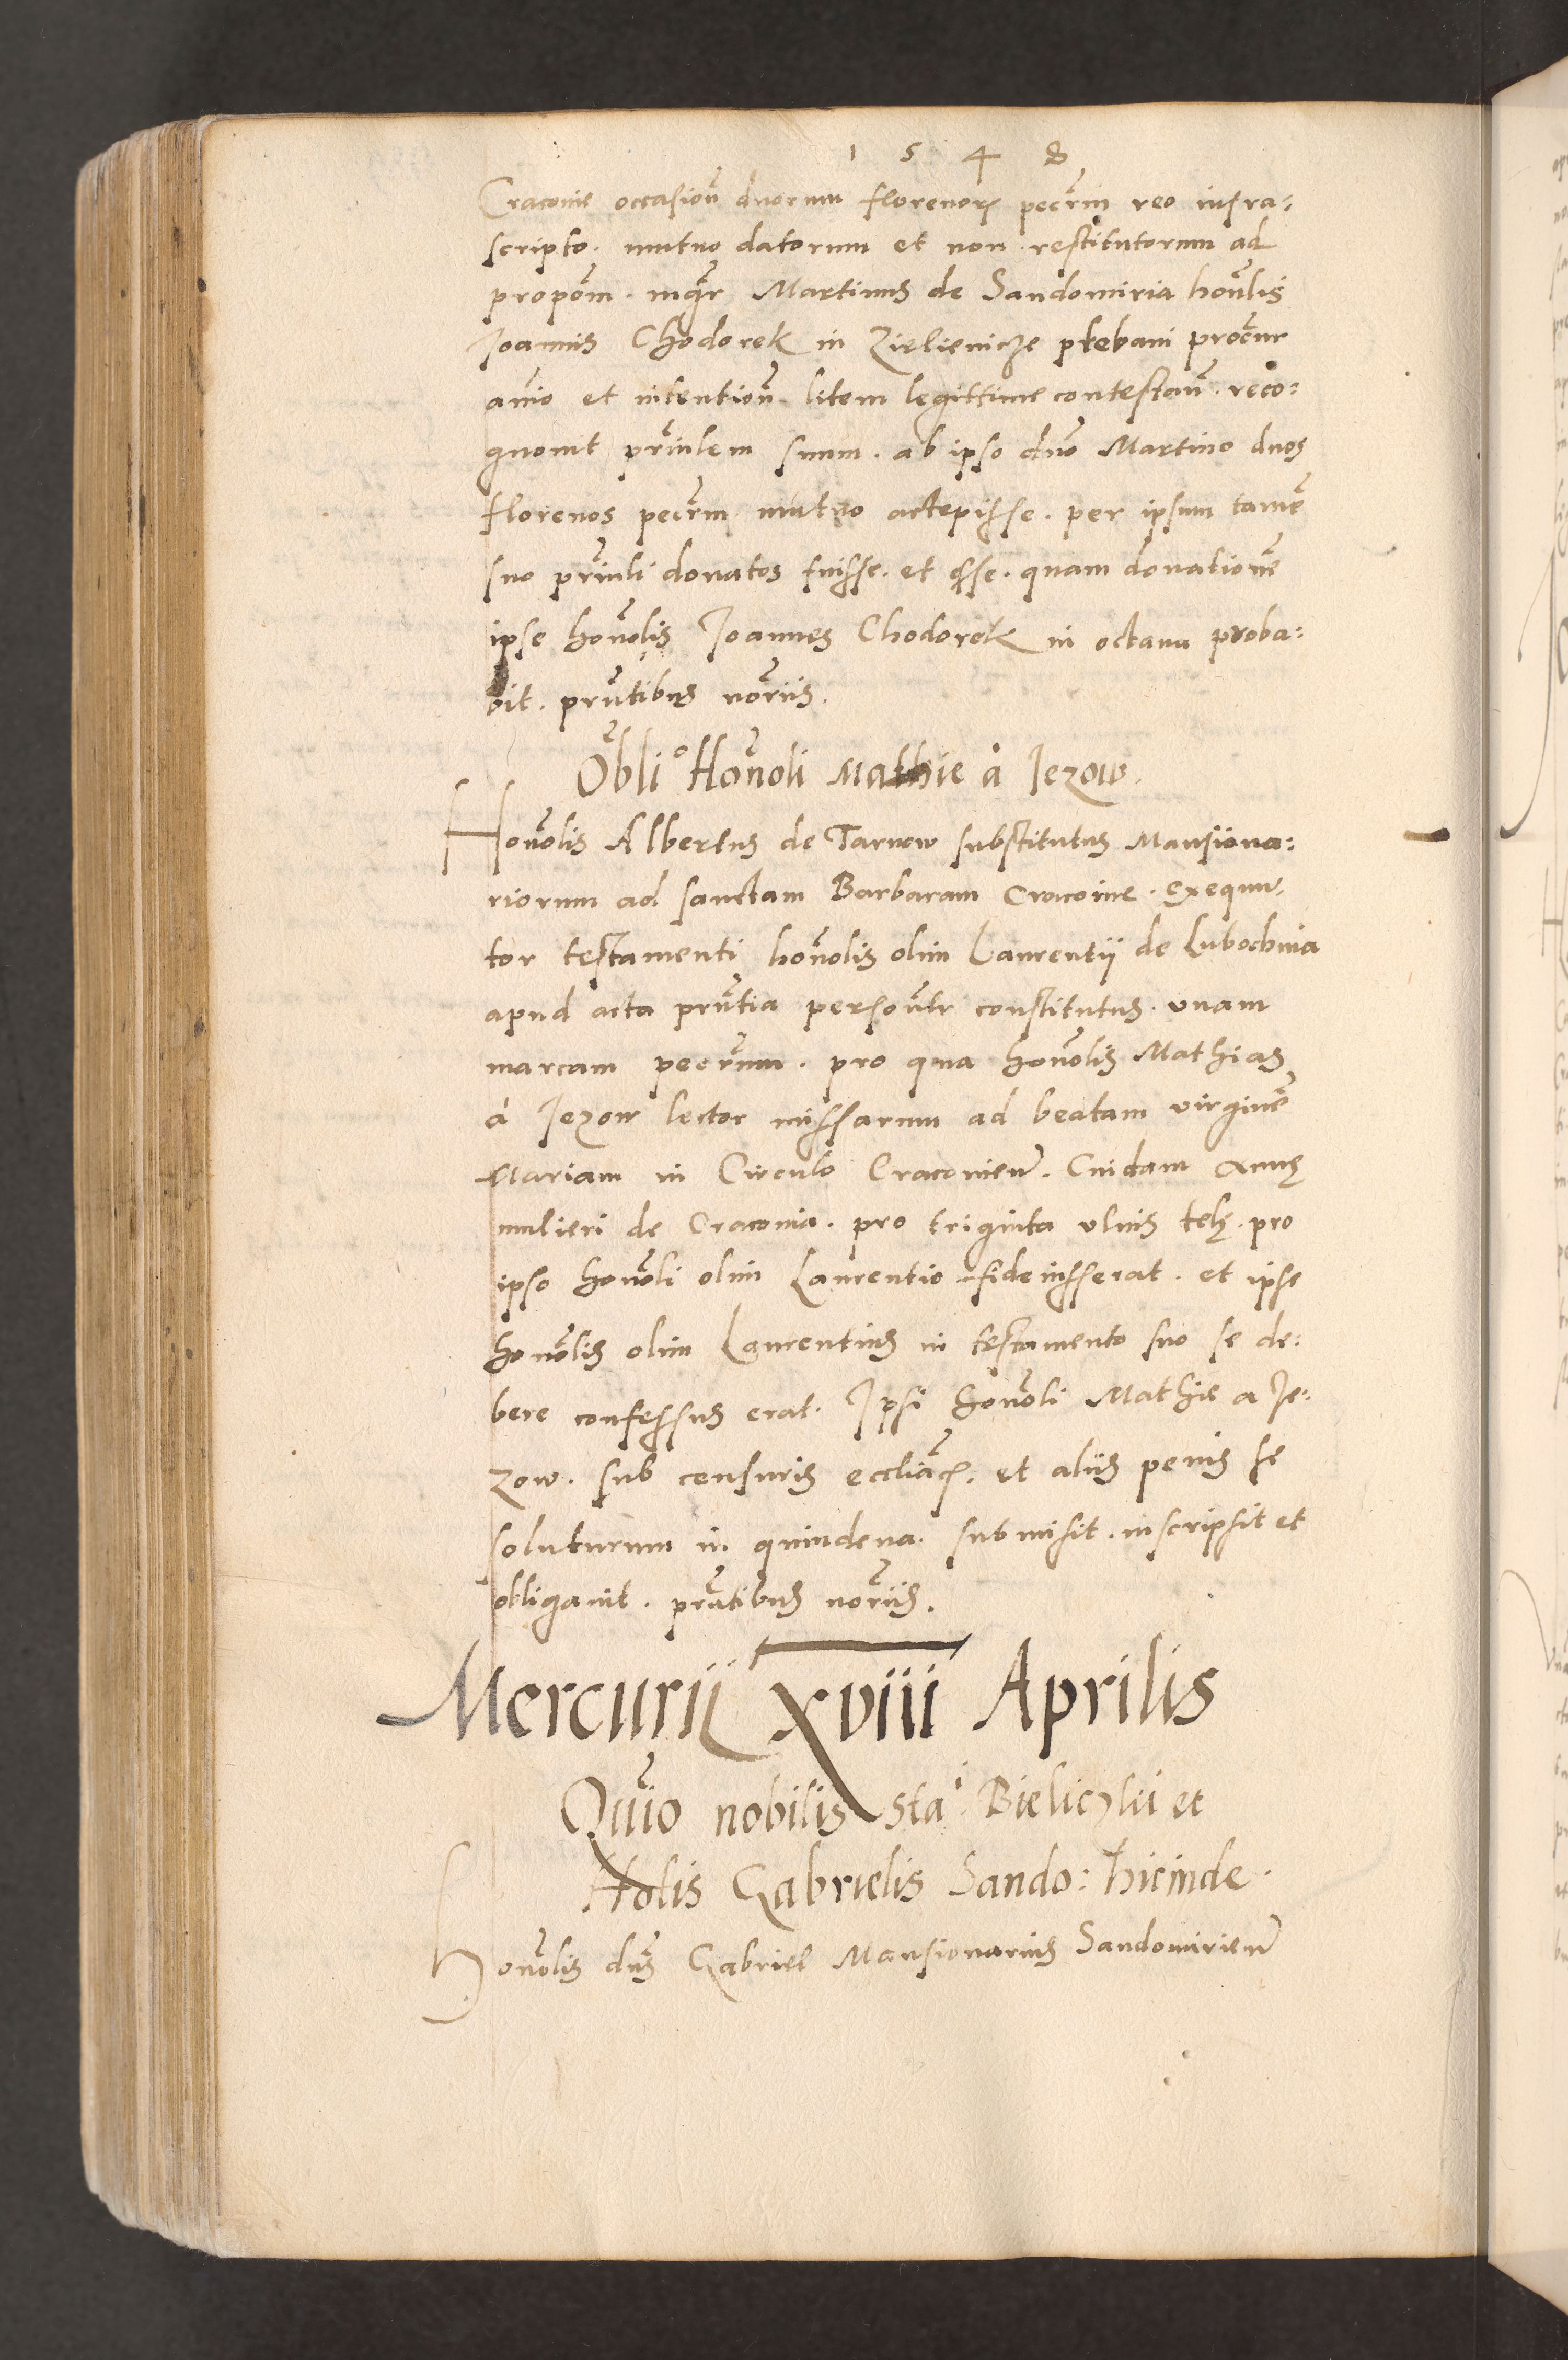 1 5 4 8
Cracovie occasioñ duorum florenorꝝ peccũm reo infra:
scripto. mutuo datorum et non restitutorum ad
propoẽm. mgr̃ Martinus de Sandomiria hoñlis
Joannis Chodorek in Zielienicze plebani procur
aĩo et intentioñ litem legittime contestañ. reco:
gnovit pr̃ñlem suum. ab ipso dño Martino duos
florenos peccũm mutuo accepisse. per ipsum tamẽ
suo pr̃ñli donatos fuisse. et esse. quam donationẽ
ipse hoñolis Joannes Chodorek in octava proba:
bit. pr̃ntibus nor̃iis.
Obliº Hoñoli Mathie à Jezow.
Hoñolis Albertus de Tarnow substitutus Mansiona:
riorum ad sanctam Barbaram Cracovie. Exequu:
tor testamenti hoñolis olim Laurentii de Lubochnia
apud acta pr̃ntia persoñlr constitutus. unam
marcam peccũm. pro qua hoñolis Mathias
à Jezow lector missarum ad beatam virginẽ
Mariam in Circulo Cracovieñ. Cuidam Annę
mulieri de Cracovia. pro triginta ulnis telę. pro
ipso hoñoli olim Laurentio fideiusserat. et ipse
hoñolis olim Laurentius in testamento suo se de:
bere confessus erat. Ipsi hoñoli Mathie a Je:
zow. sub censuris eccliãcis. et aliis penis se
soluturum in quindena. submisit. inscripsit et
obligavit. pr̃ntibus nor̃iis.
Mercurii xviii Aprilis
Quĩo nobilis Staⁱ Bieliczki et
Holis Gabrielis Sando: hicinde.
Hoñolis dñs Gabriel Mansionarius Sandomirieñ